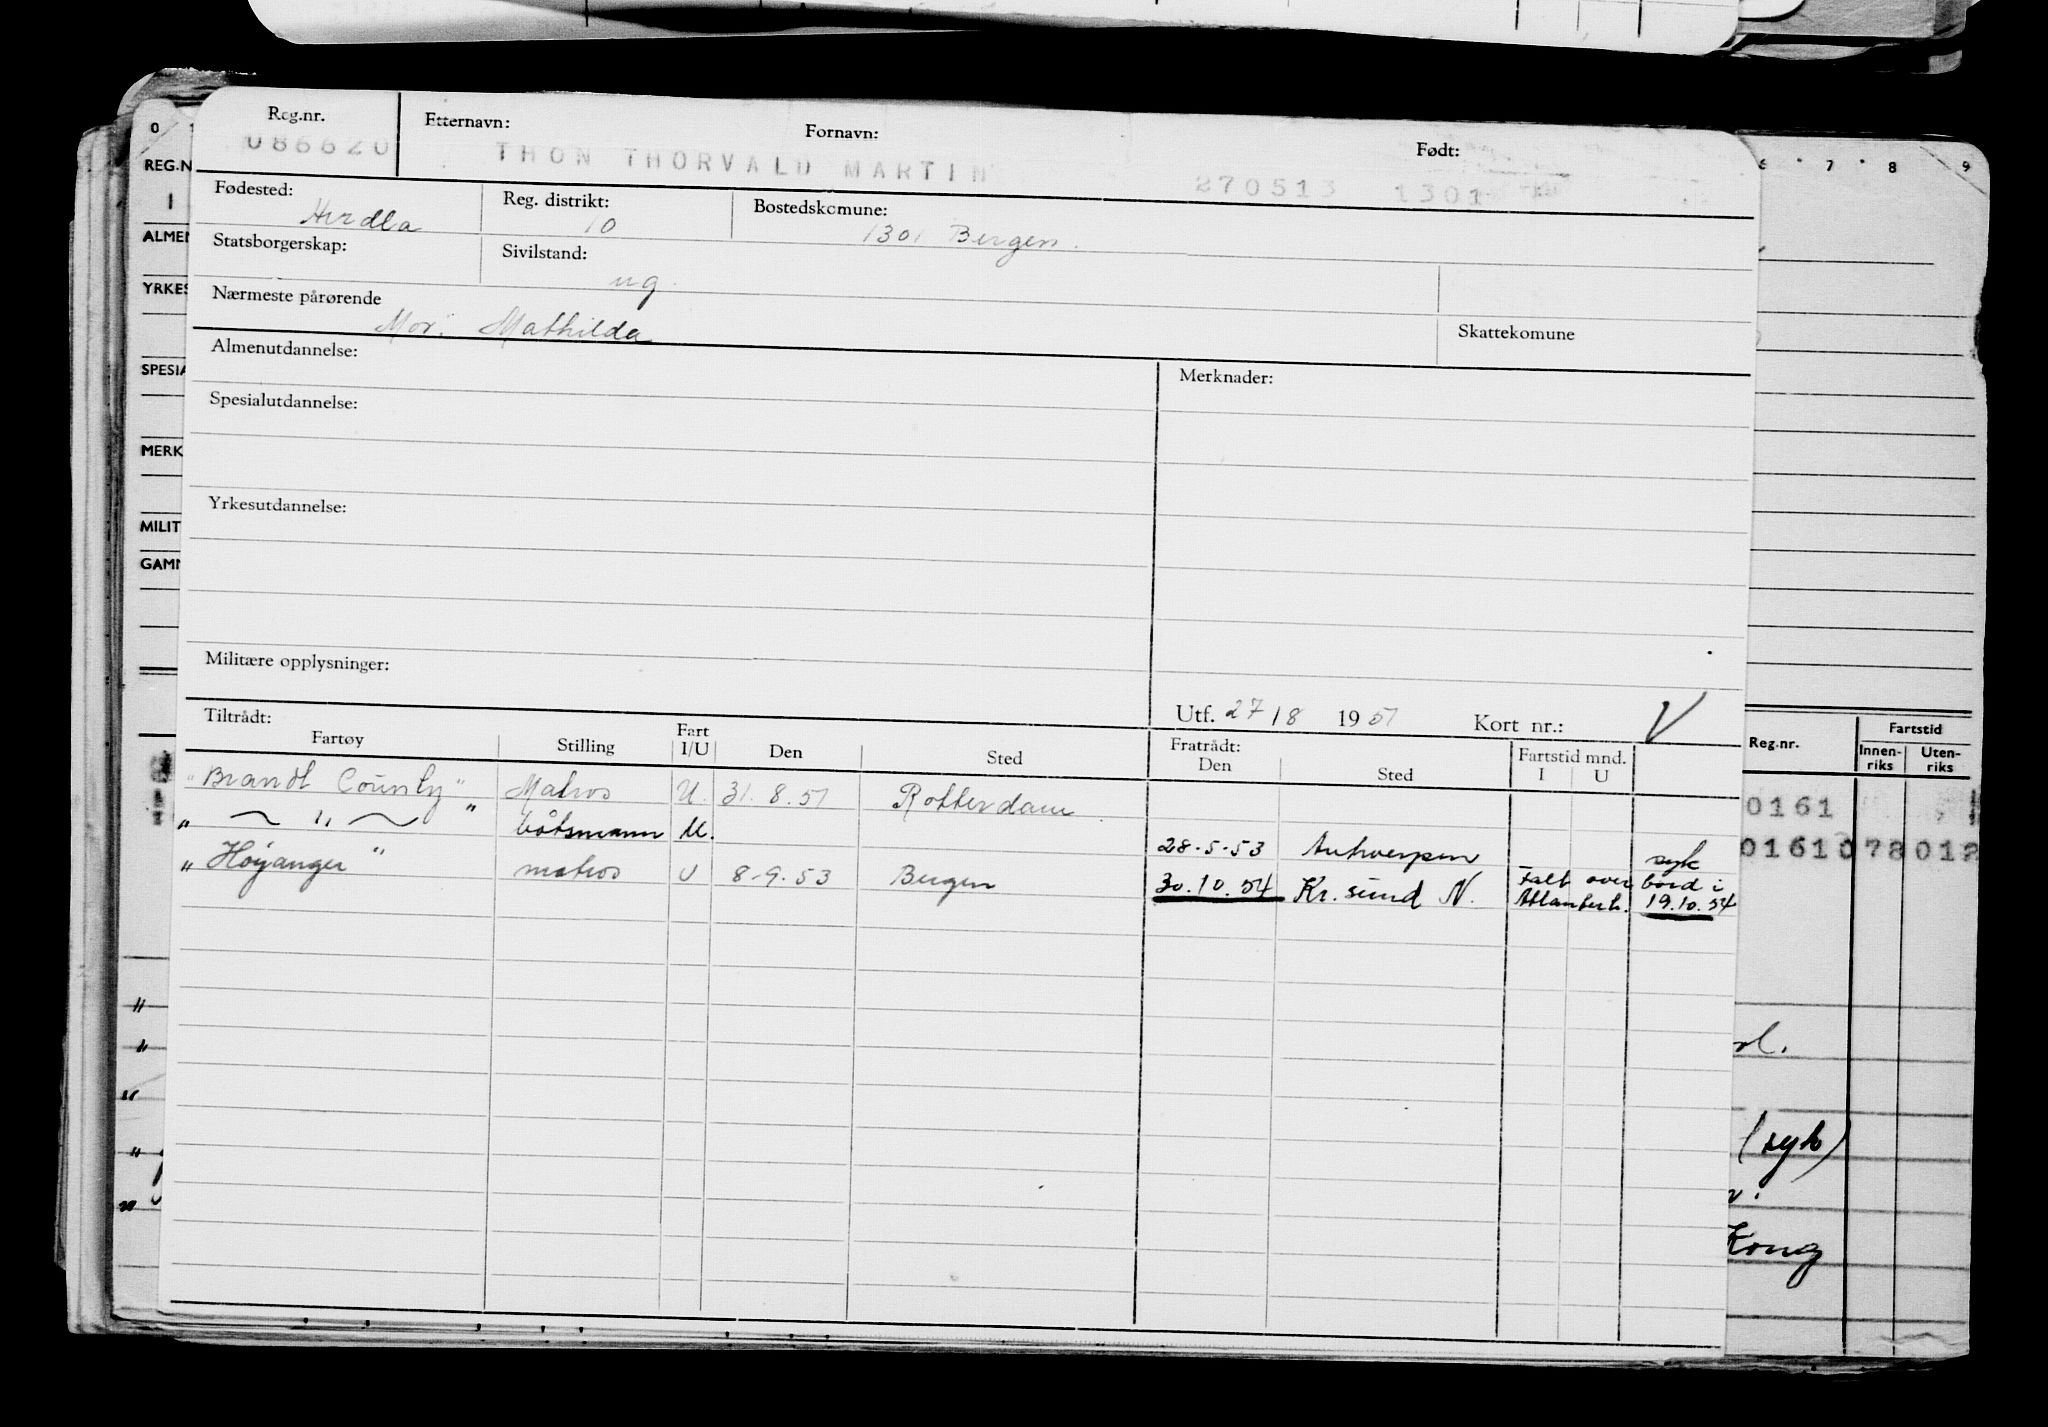 Reg.nr. Etternavn: Fornavn: Født:
086620 THON THORVALD MARTIN 270513 1301
Fødested: Reg. distrikt: Bostedskomune:
Herdla 10 1301 Bergen.
Statsborgerskap: Sivilstand:
ug.
Nærmeste pårørende
Mor: Mathilda Skattekomune
Almenutdannelse: Merknader:
Spesialutdannelse:
Yrkesutdannelse:
Militære opplysninger:
Utf. 27/8 1951 Kort nr.: V
Tiltrådt: Fratrådt:
Fartøy Stilling Fart I/U Den Sted Den Sted Fartstid mnd. I U
"Brandt County" Matros U. 31.8.51 Rotterdam
" — " — " båtsmann U. 28-5-53 Antwerpen syk
"Høyanger" matros U 8-9.53 Bergen 30.10.54 Kr.sund N. Falt over bord i
Atlanterh. 19.10.54
0 6 7 8 9
REG.N
I
ALMEN
YRKES
SPESIA
MERK
MILIT
GAMN
Reg.nr. Fartstid
Innen-riks Uten-riks
0161
01610 78 012
(syk)
Kong